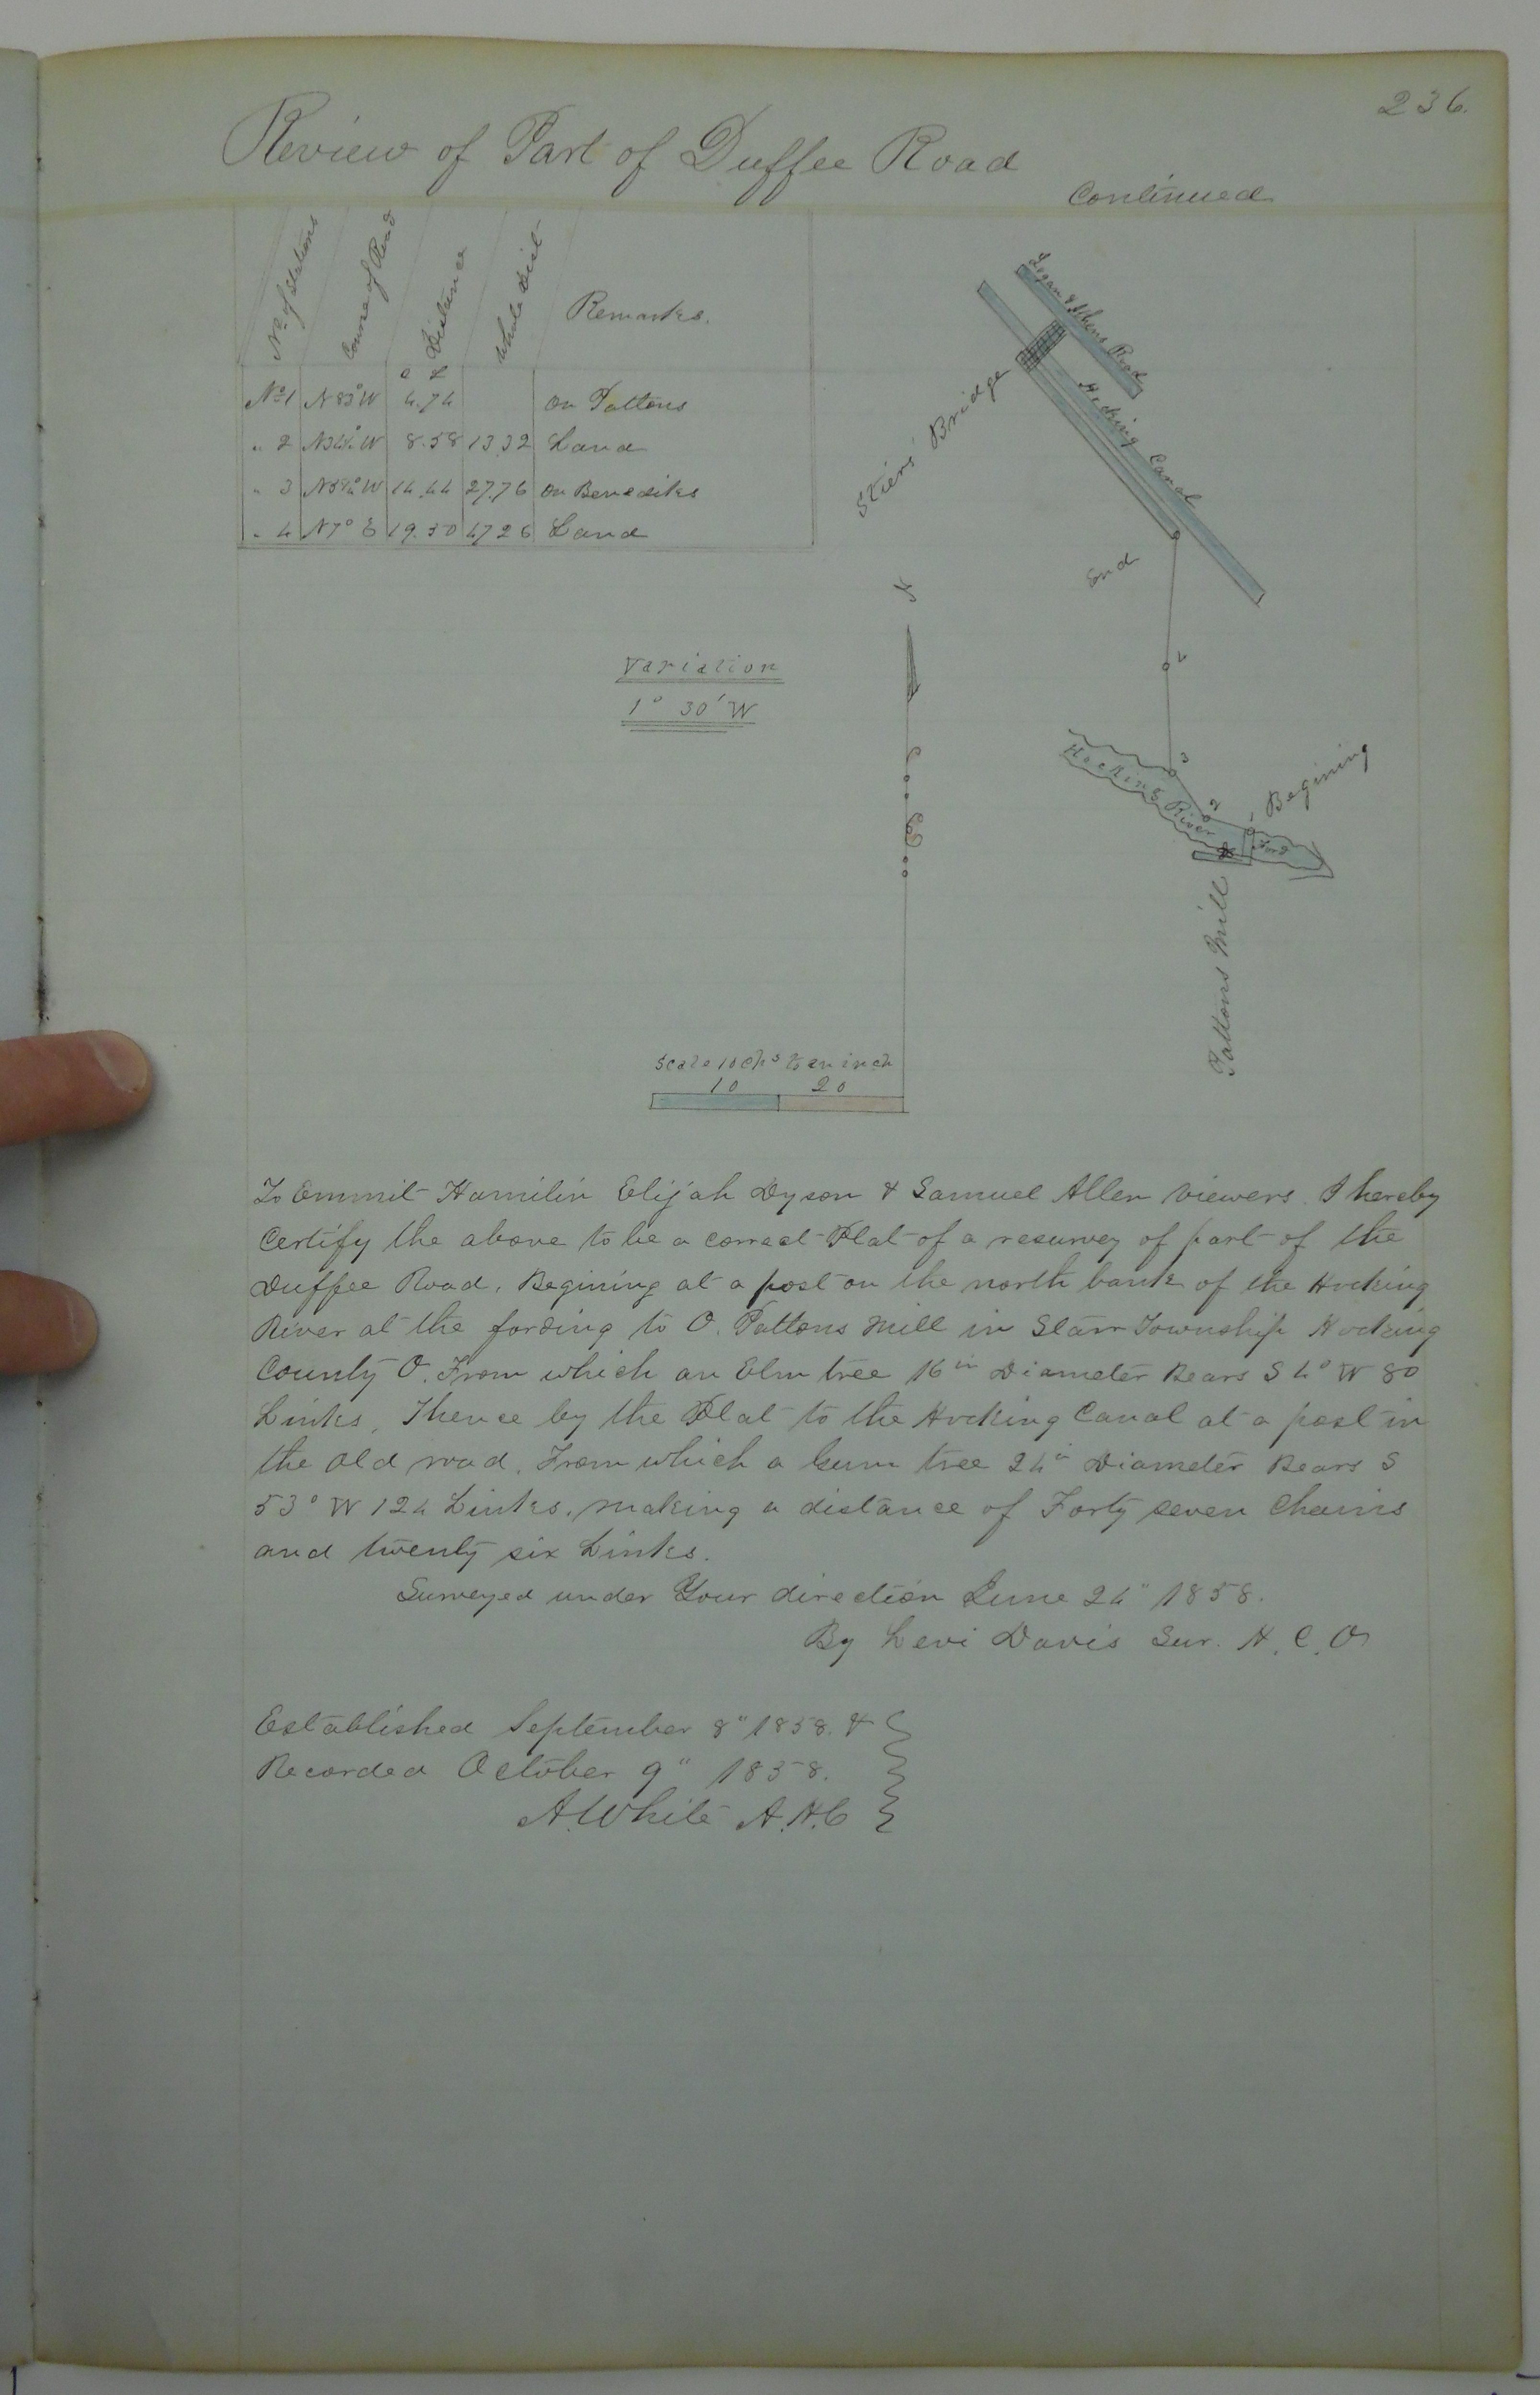 236.
Review of Part of Duffee Road
Continued
No. of Stations | Course of Road | Distance | Whole Dist | Remarks.
C L
No 1 | N 83° W | 4.74 | | On Pattons
" 2 | W | 8.58 | 13.32 | Land
" 3 | W | 14.44 | 27.76 | On Benedikes
" 4 | N 7° E | 19.50 | 47.26 | Land
Logan & Athens Road
Stiers Bridge
Hocking Canal
End
N
4
Variation
1° 30' W
3
Hocking River
2
1
Begining
Ford
Pattons Mill
Scale 10 chs to an inch
10 20
To Emmit Hamilin Elijah Dyson & Samuel Allen Viewers. I hereby
Certify the above to be a correct Plat of a resurvey of part of the
Duffee Road. Begining at a post on the north bank of the Hocking
River at the fording to O. Pattons Mill in Starr Township Hocking
County O. From which an Elm tree 16 in Diameter Bears S 4° W 80
Links, Thence by the Plat to the Hocking Canal at a post in
the old road. From which a Gum tree 24 in Diameter Bears S
53° W 124 Links. making a distance of Forty seven Chains
and twenty six Links.
Surveyed under Your direction June 24" 1858.
By Levi Davis Sur. H. C. O
Established September 8" 1858. &
Recorded October 9" 1858.
A. White A.H.C